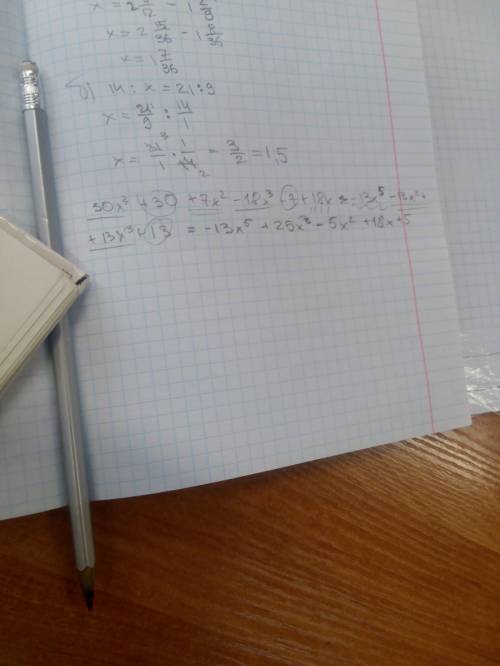 x = 2 5/12 - 1 2/9
x = 2 15/36 - 1 8/36
x = 1 7/36
б) 14 : x = 21 : 9
x = 21/9 : 14/1
x = 21 3/1 · 1/14 2 = 3/2 = 1,5
30x³ + 30 + 7x² - 18x³ - 3 + 18x - 13x⁵ - 13x² +
+ 13x³ - 13 = -13x⁵ + 25x³ - 5x² + 18x + 5